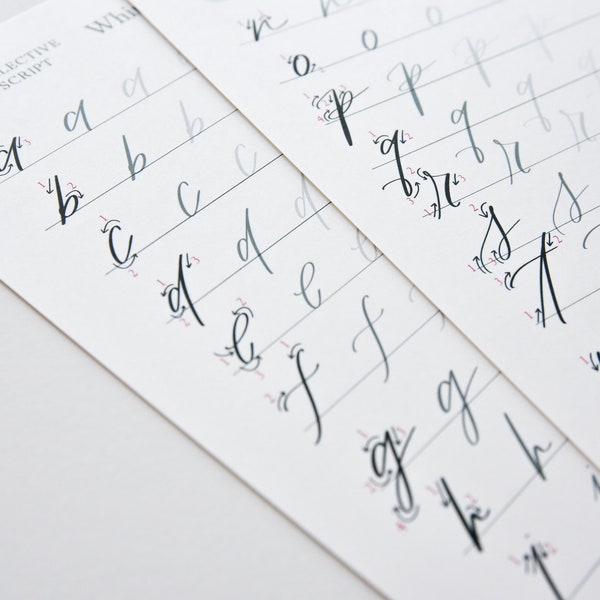 LECTIVE
SCRIPT
Whi
a a a
b b b
c c c
d d d
e e
f f
g g
h h
i
n h
o o o
p p p p
q q q
r r r
s s
t